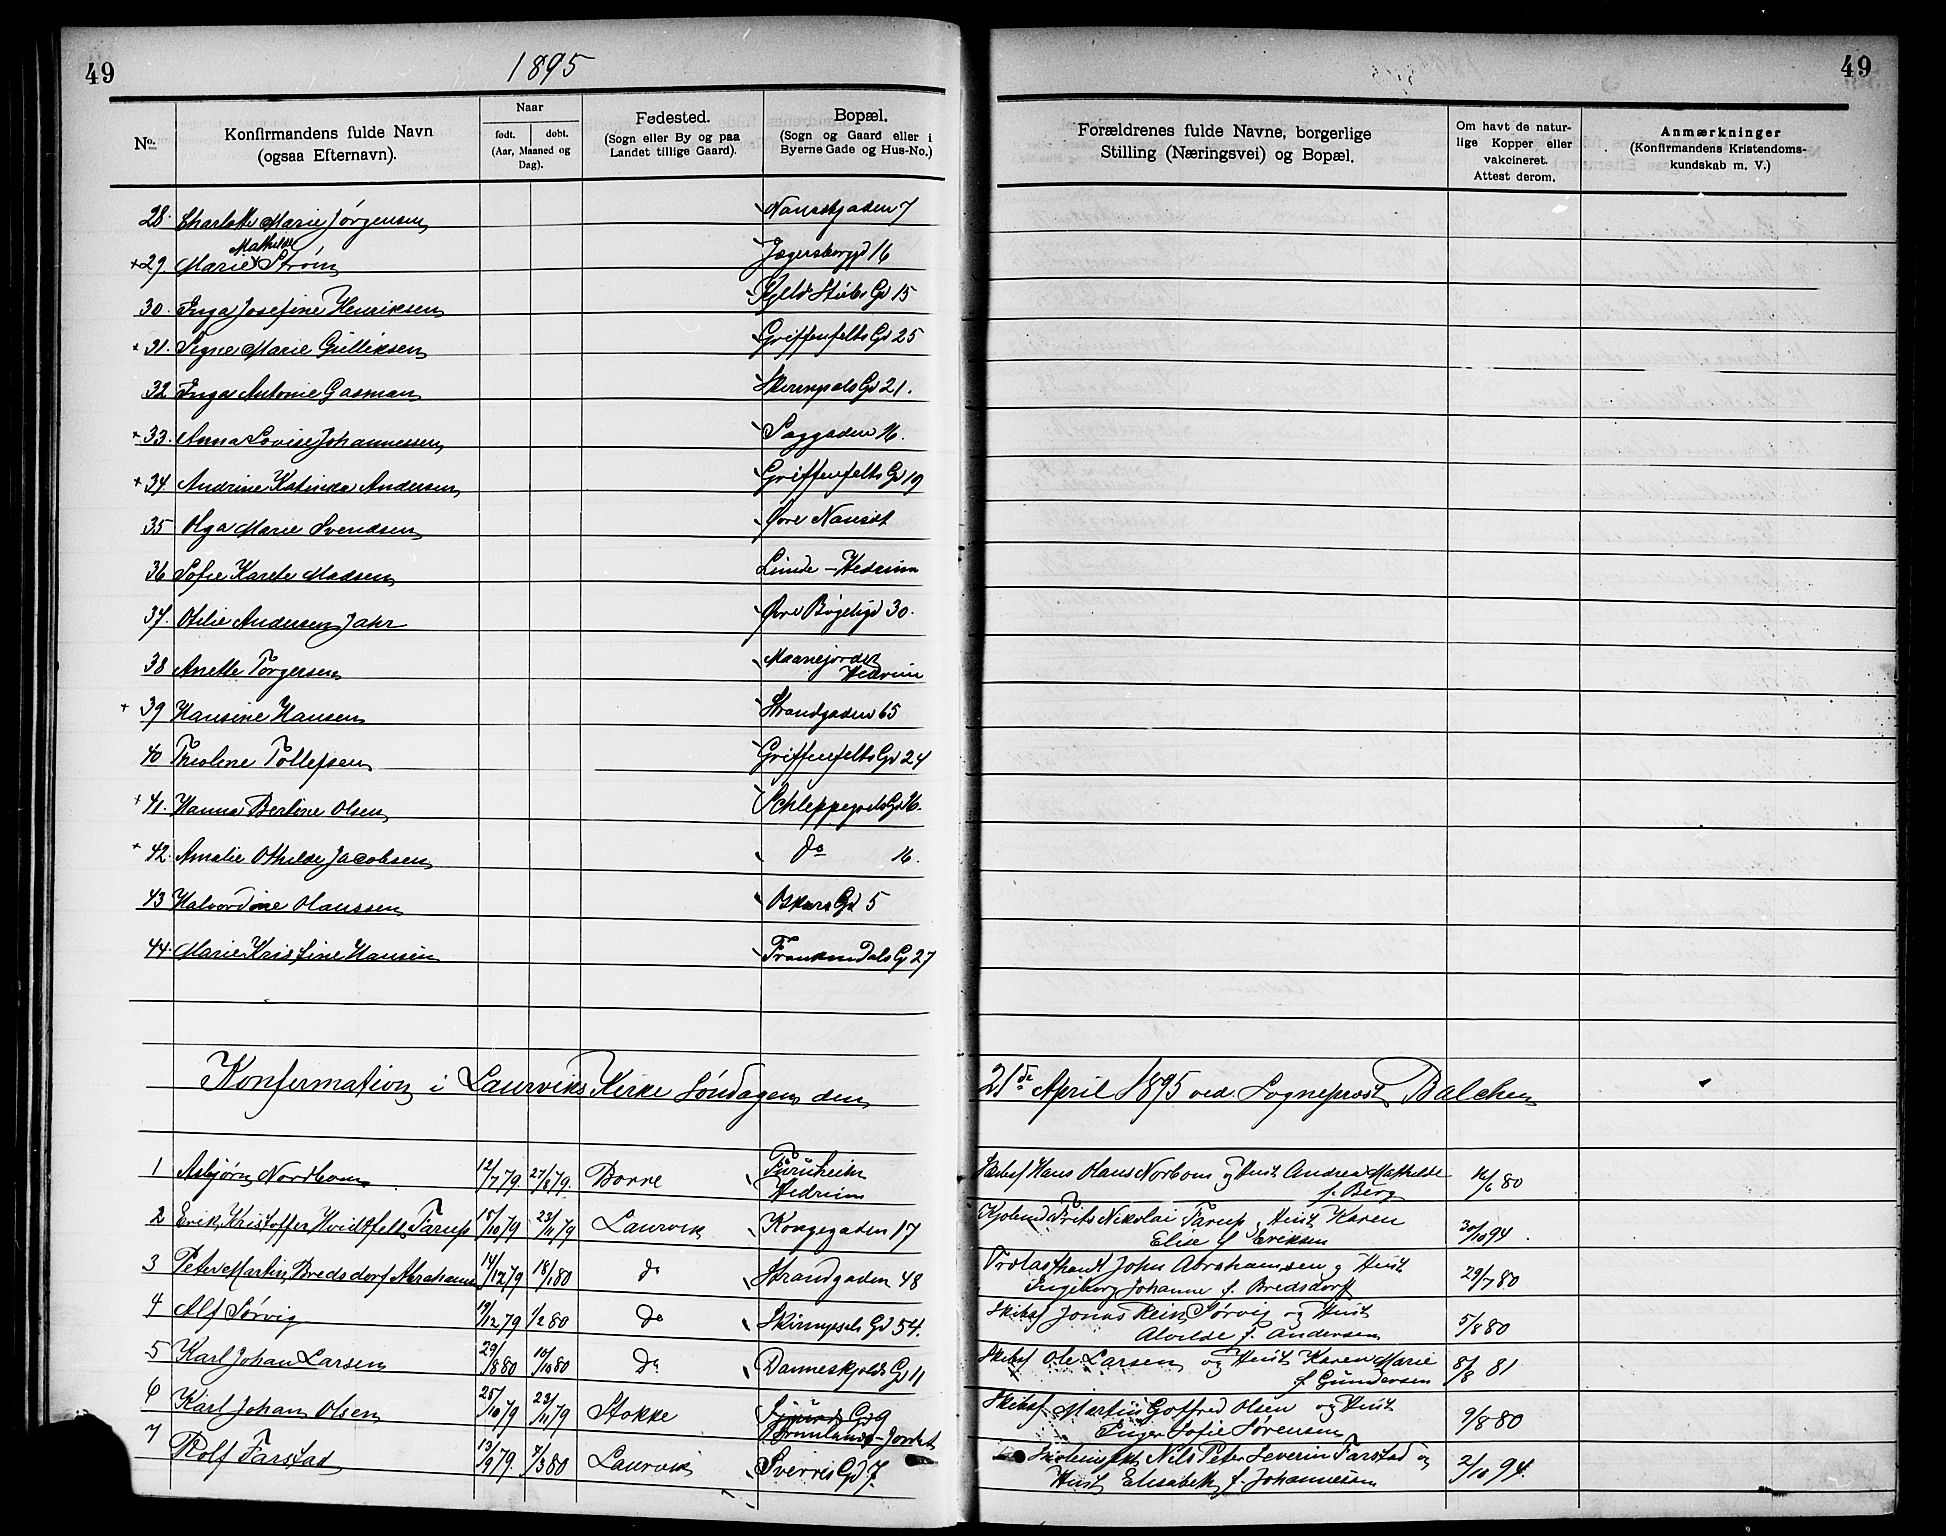 49
1895
49
No.
Konfirmandens fulde Navn
(ogsaa Efternavn).
Naar
født. dobt.
(Aar, Maaned og
Dag).
Fødested.
(Sogn eller By og paa
Landet tillige Gaard).
Bopæl.
(Sogn og Gaard eller i
Byerne Gade og Hus-No.)
Forældrenes fulde Navne, borgerlige
Stilling (Næringsvei) og Bopæl.
Om havt de natur-
lige Kopper eller
vakcineret.
Attest derom.
Anmærkninger
(Konfirmandens Kristendoms-
kundskab m. V.)
28. Charlotte Marie Jørgensen Nansetgaden 7
Mathilde
+29. Marie Strøm Jegersborggd 16
30. Inga Josefine Henriksen Kjeld Stubs Gd 15
+ 31. Signe Marie Gulliksen Griffenfelts Gd 25
32 Inga Antonie Gasman Skirnisals Gd 21.
+ 33. Anna Lovise Johannessen Saggaden 16.
+ 34 Andrine Katinka Andersen Griffenfelts Gd 19
35 Olga Marie Svendsen Øvre Nanset
36 Sofie Karete Madsen Linde - Hedrum
37. Otilie Andersen Jahr Øvre Bøgeligd 30.
38 Anette Torgersen Maanejordet
Hedrum
+ 39 Hansine Hansen Strandgaden 65
40 Theoline Tollefsen Griffenfelts Gd 24
+ 41. Hanna Bertine Olsen Schleppegrels Gd 16.
+ 42. Amalie Othilde Jacobsen do 16.
43 Halvordine Olaussen Oskars Gd 5
44. Marie Kristine Hansen Frankendals Gd 27
Konfirmation i Laurviks Kirke Søndagen den 21de April 1895 ved Sogneprest Balchen
1 Asbjørn Nordbom 12/7 79 27/ 79. Borre Furuheim
Hedrum Hans Olaus Norbom og Hust Andrea Mathilde
f. Berg 16/6 80
2 Erik Kristoffer Hvidtfelt Farup 15/10 79 23/11 79 Laurvik Kongegaden 17 Kjøbmd Frits Nikolai Farup, Hust. Karen
Elise f. Eriksen 30/10 94.
3 Peter Martin Bredsdorf Abrahams 14/12 79 18/1 80 do Strandgaden 48 Trælasthandl John Abrahamsen og Hust
Ingeborg Johanne f. Bredsdorff 29/7 80
4 Alf Sørvig 19/12 79 1/2 80 do Skirnisals Gd 54. Skibsf Jonas Rein Sørvig og Hust
Alvilde f. Andersen 5/8 80
5 Karl Johan Larsen 29/8 80 10/10 80 do Danneskjolds Gd 11 Skibsf Ole Larsen og Hust Karen Marie
f. Gundersen 8/8 81
6 Karl Johan Olsen 25/10 79 23/11 79 Stokke Sigurds Gd 9
Brunlanes-Jordet Skibsf Martin Gotfred Olsen og Hust
Inger Sofie Sørensen 9/8 80
7 Rolf Farstad 13/9 79. 7/3 80 Laurvik Sverres Gd 7. Nils Peter Severin Farstad og
Hust Elisabeth f. Johannessen 2/10 94.